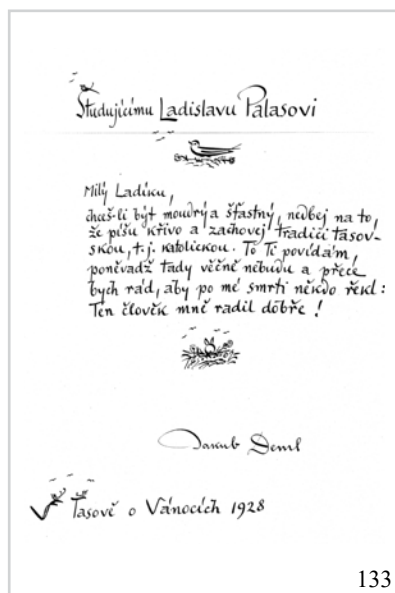 Studujícímu Ladislavu Palasovi
Milý Ladíku,
chceš-li být moudrý a šťastný, nedbej na to,
že píšu křivo a zachovej tradici tasov-
skou, t.j. katolickou. To Ti povídám,
poněvadž tady věčně nebudu a přece
bych rád, aby po mé smrti někdo řekl:
Ten člověk mně radil dobře!
Jakub Deml
V Tasově o Vánocích 1928
133